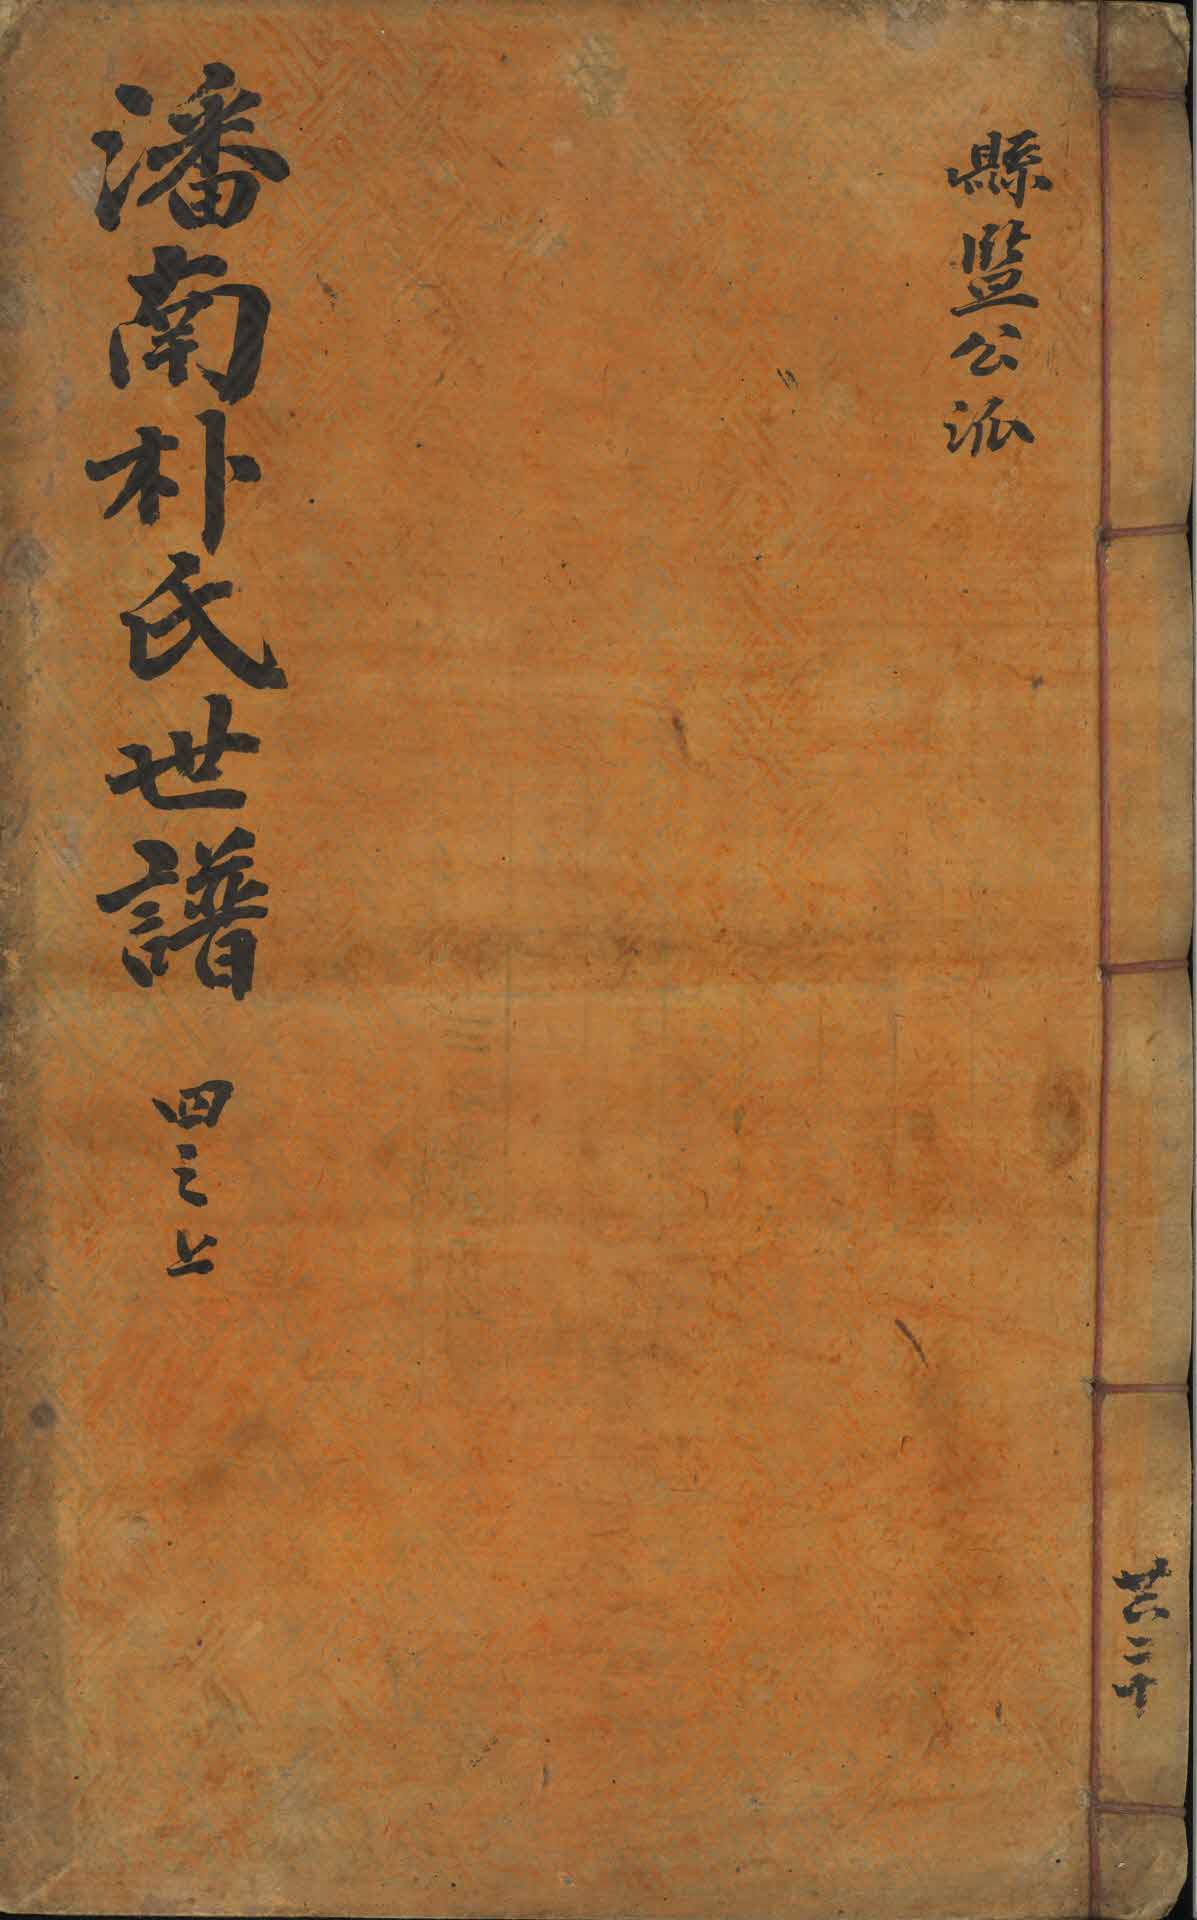 縣監公派
潘南朴氏世譜 四之上
共二十